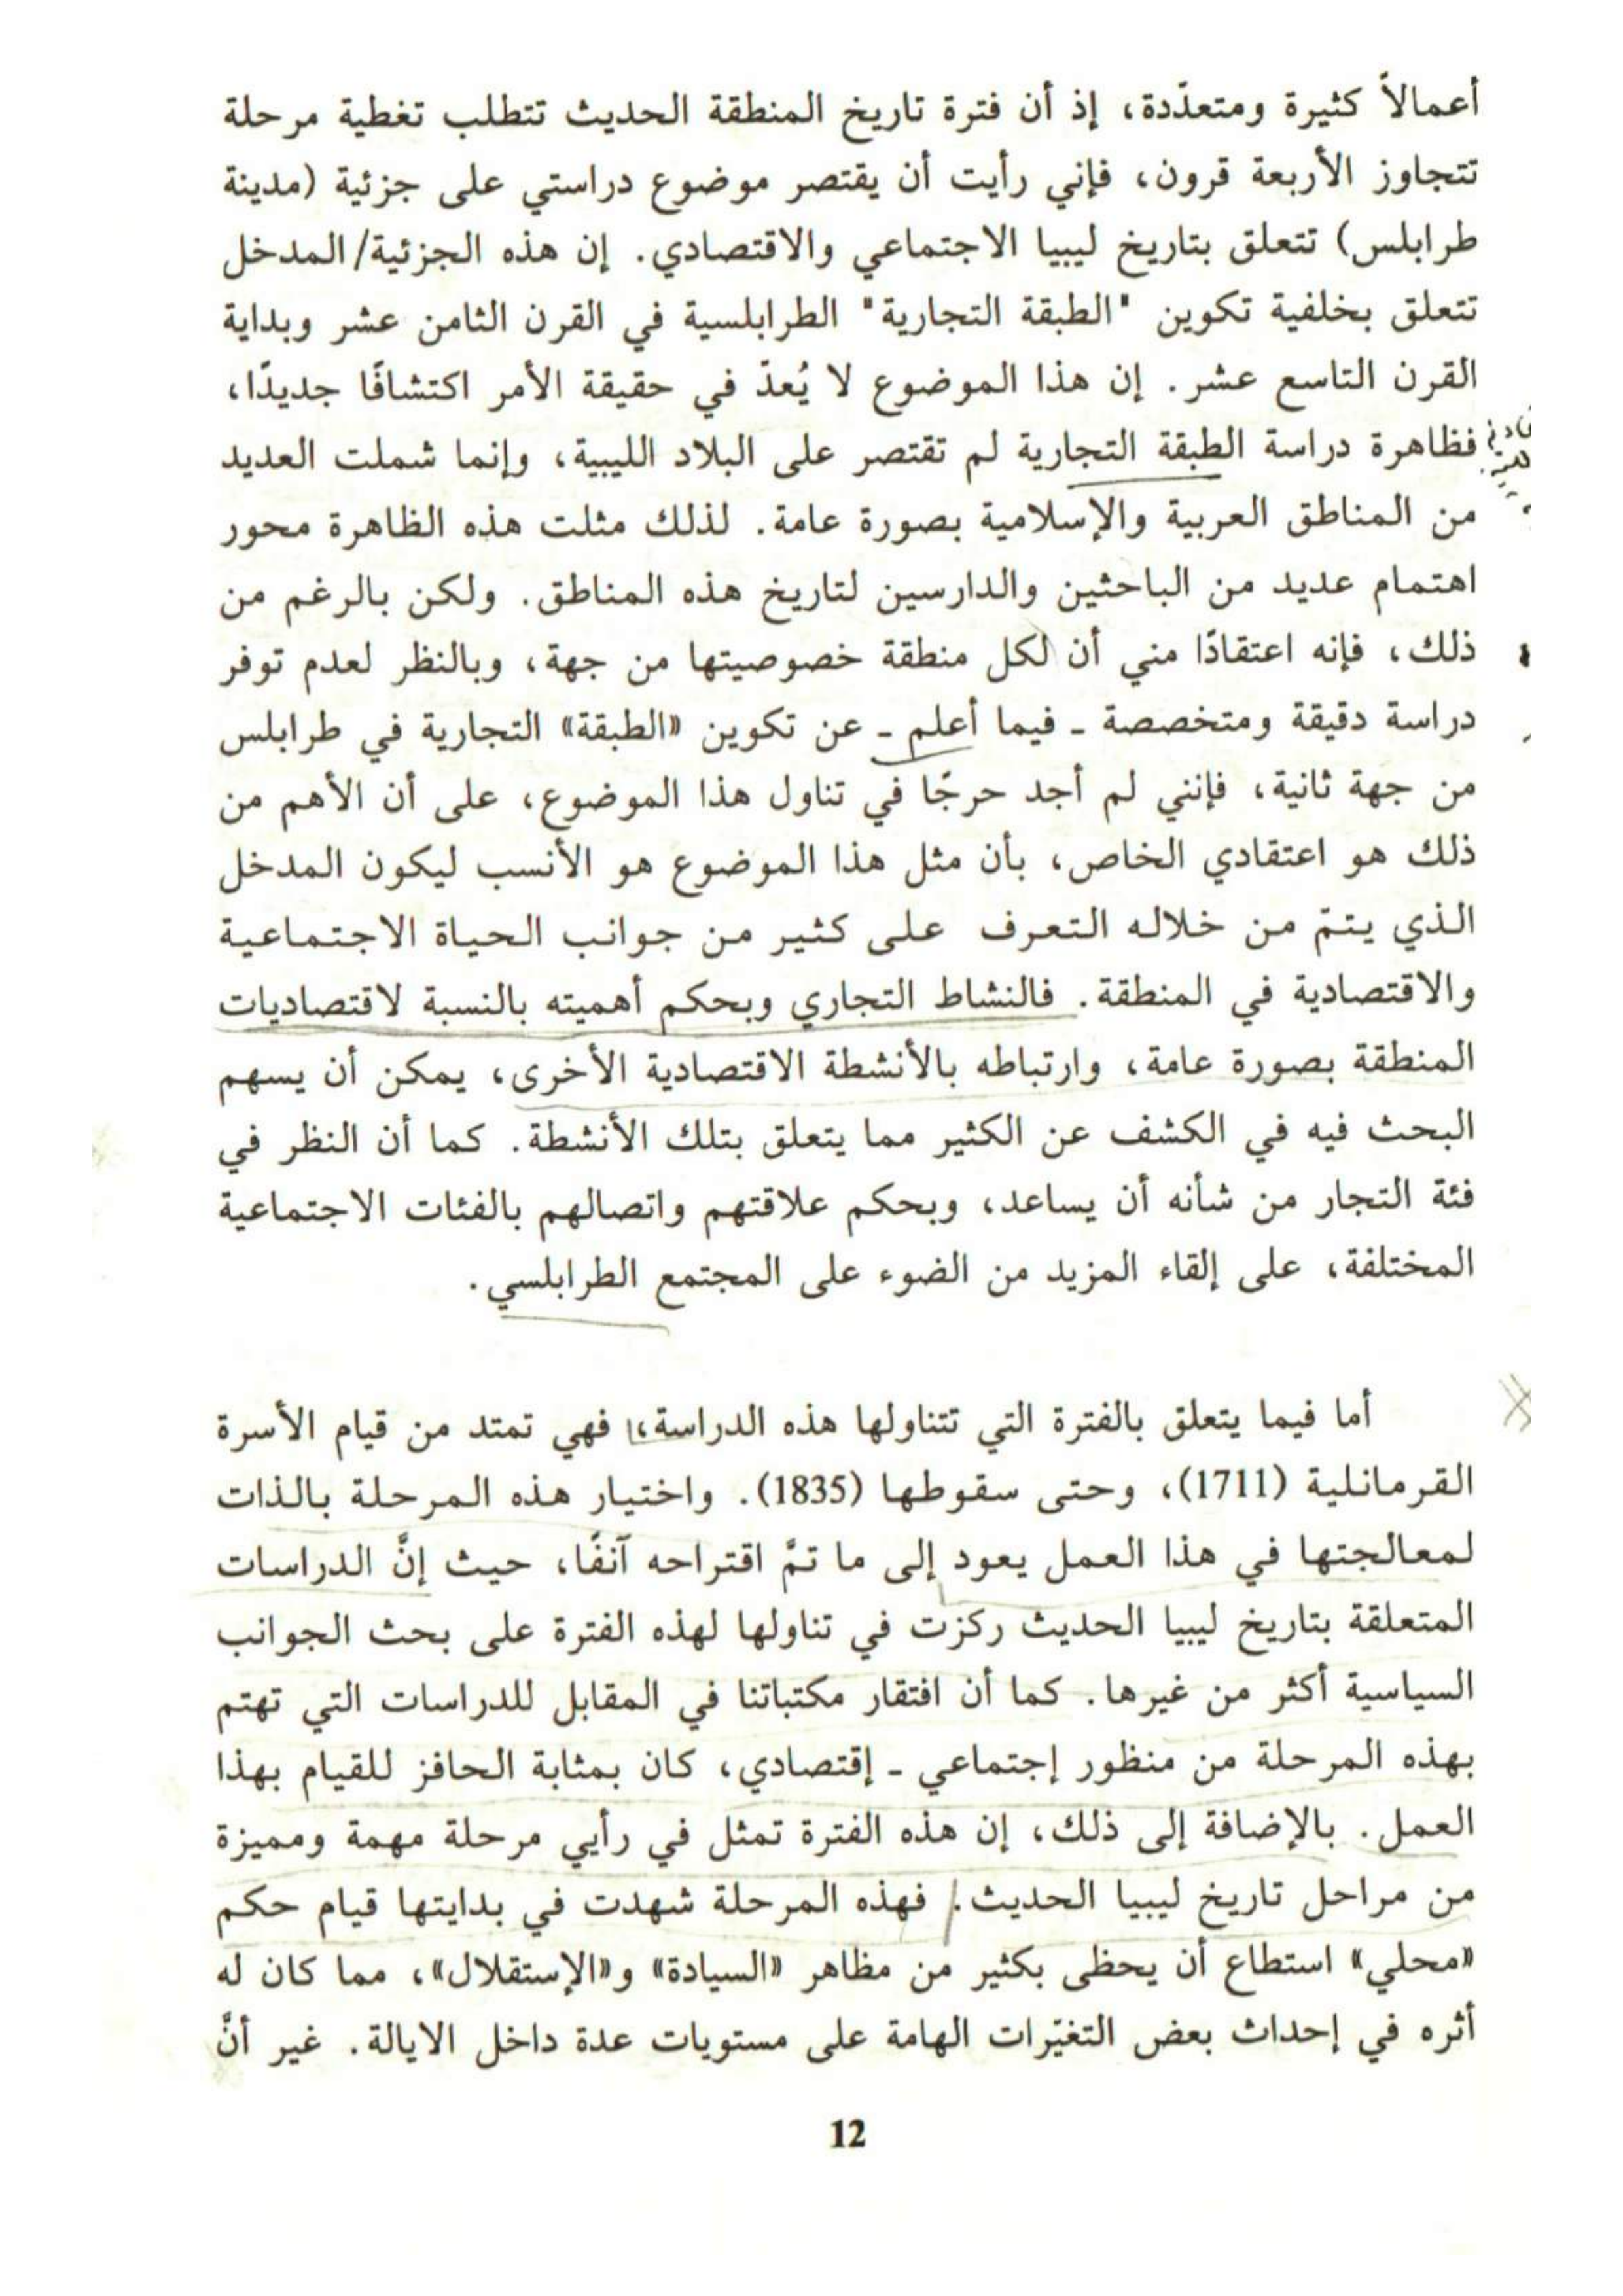 أعمالاً كثيرة ومتعدّدة، إذ أن فترة تاريخ المنطقة الحديث تتطلب تغطية مرحلة
تتجاوز الأربعة قرون، فإني رأيت أن يقتصر موضوع دراستي على جزئية (مدينة
طرابلس) تتعلق بتاريخ ليبيا الاجتماعي والاقتصادي. إن هذه الجزئية/المدخل
تتعلق بخلفية تكوين "الطبقة التجارية" الطرابلسية في القرن الثامن عشر وبداية
القرن التاسع عشر. إن هذا الموضوع لا يُعدّ في حقيقة الأمر اكتشافًا جديدًا،
فظاهرة دراسة الطبقة التجارية لم تقتصر على البلاد الليبية، وإنما شملت العديد
من المناطق العربية والإسلامية بصورة عامة. لذلك مثلت هذه الظاهرة محور
اهتمام عديد من الباحثين والدارسين لتاريخ هذه المناطق. ولكن بالرغم من
ذلك، فإنه اعتقادًا مني أن لكل منطقة خصوصيتها من جهة، وبالنظر لعدم توفر
دراسة دقيقة ومتخصصة ـ فيما أعلم ـ عن تكوين «الطبقة» التجارية في طرابلس
من جهة ثانية، فإنني لم أجد حرجًا في تناول هذا الموضوع، على أن الأهم من
ذلك هو اعتقادي الخاص، بأن مثل هذا الموضوع هو الأنسب ليكون المدخل
الذي يتمّ من خلاله التعرف على كثير من جوانب الحياة الاجتماعية
والاقتصادية في المنطقة. فالنشاط التجاري وبحكم أهميته بالنسبة لاقتصاديات
المنطقة بصورة عامة، وارتباطه بالأنشطة الاقتصادية الأخرى، يمكن أن يسهم
البحث فيه في الكشف عن الكثير مما يتعلق بتلك الأنشطة. كما أن النظر في
فئة التجار من شأنه أن يساعد، وبحكم علاقتهم واتصالهم بالفئات الاجتماعية
المختلفة، على إلقاء المزيد من الضوء على المجتمع الطرابلسي.
أما فيما يتعلق بالفترة التي تتناولها هذه الدراسة، فهي تمتد من قيام الأسرة
القرمانلية (1711)، وحتى سقوطها (1835). واختيار هذه المرحلة بالذات
لمعالجتها في هذا العمل يعود إلى ما تمَّ اقتراحه آنفًا، حيث إنَّ الدراسات
المتعلقة بتاريخ ليبيا الحديث ركزت في تناولها لهذه الفترة على بحث الجوانب
السياسية أكثر من غيرها. كما أن افتقار مكتباتنا في المقابل للدراسات التي تهتم
بهذه المرحلة من منظور إجتماعي ـ إقتصادي، كان بمثابة الحافز للقيام بهذا
العمل. بالإضافة إلى ذلك، إن هذه الفترة تمثل في رأيي مرحلة مهمة ومميزة
من مراحل تاريخ ليبيا الحديث. فهذه المرحلة شهدت في بدايتها قيام حكم
«محلي» استطاع أن يحظى بكثير من مظاهر «السيادة» و«الإستقلال»، مما كان له
أثره في إحداث بعض التغيّرات الهامة على مستويات عدة داخل الايالة. غير أنَّ
12